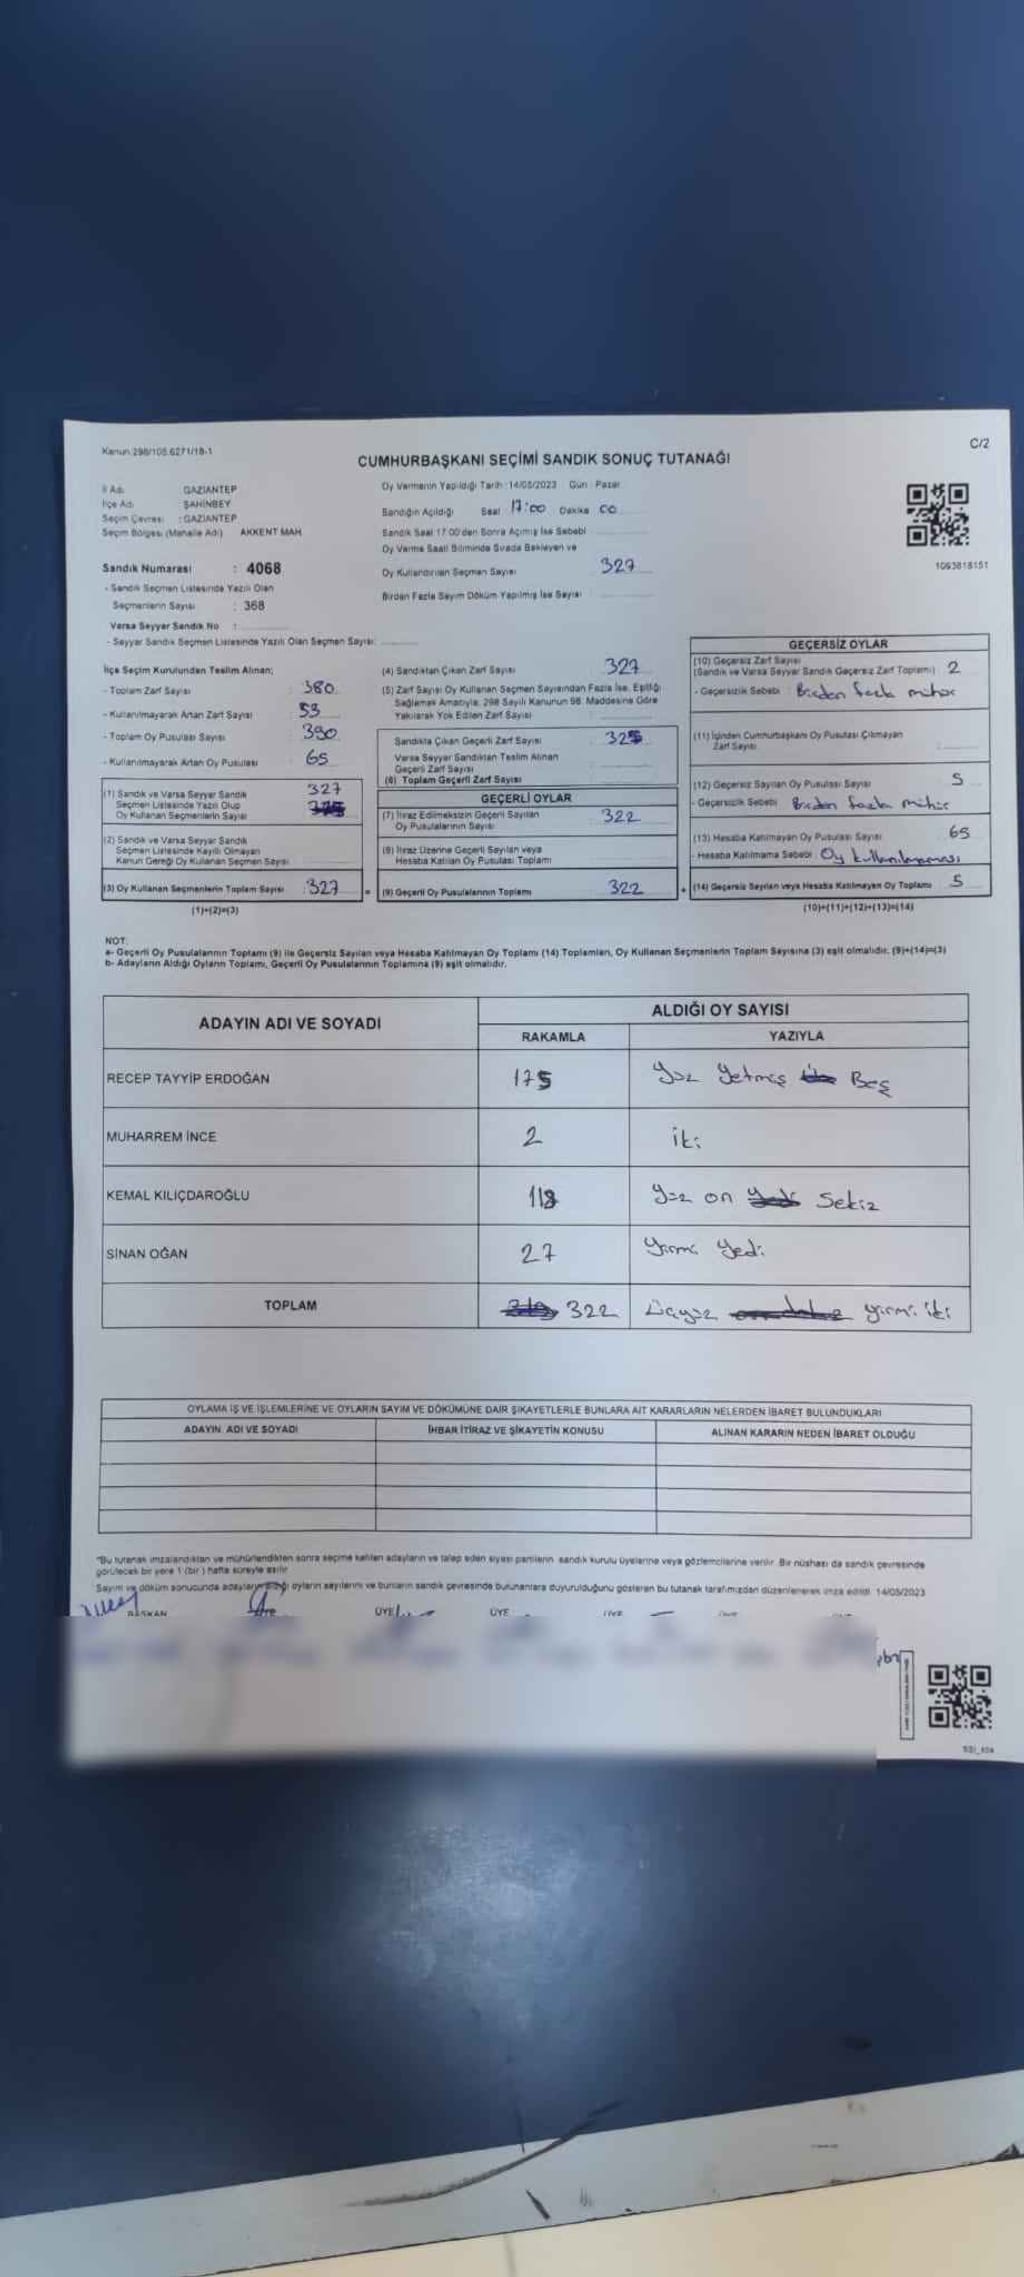 Kanun 298/105.6271/18-1
C/2
CUMHURBAŞKANI SEÇİMİ SANDIK SONUÇ TUTANAĞI
İl Adı GAZİANTEP
İlçe Adı ŞAHİNBEY
Seçim Çevresi : GAZİANTEP
Seçim Bölgesi (Mahalle Adı) AKKENT MAH.
Sandık Numarası : 4068
- Sandık Seçmen Listesinde Yazılı Olan
Seçmenlerin Sayısı : 368
Varsa Seyyar Sandık No :
- Seyyar Sandık Seçmen Listesinde Yazılı Olan Seçmen Sayısı:
Oy Vermenin Yapıldığı Tarih : 14/05/2023 Gün : Pazar
Sandığın Açıldığı Saat 17:00 Dakika 00
Sandık Saat 17.00'den Sonra Açımış İse Sebebi
Oy Verme Saati Bitiminde Sırada Bekleyen ve
Oy Kullandırılan Seçmen Sayısı 327
Birden Fazla Sayım Döküm Yapılmış İse Sayısı
1093818151
İlçe Seçim Kurulundan Teslim Alınan;
- Toplam Zarf Sayısı : 380
- Kullanılmayarak Artan Zarf Sayısı : 53
- Toplam Oy Pusulası Sayısı : 390
- Kullanılmayarak Artan Oy Pusulası : 65
(1) Sandık ve Varsa Seyyar Sandık
Seçmen Listesinde Yazılı Olup
Oy Kullanan Seçmenlerin Sayısı 327
(2) Sandık ve Varsa Seyyar Sandık
Seçmen Listesinde Kayıtlı Olmayan
Kanun Gereği Oy Kullanan Seçmen Sayısı
(3) Oy Kullanan Seçmenlerin Toplam Sayısı : 327 =
(1)+(2)=(3)
(4) Sandıktan Çıkan Zarf Sayısı 327
(5) Zarf Sayısı Oy Kullanan Seçmen Sayısından Fazla İse, Eşitliği
Sağlamak Amacıyla, 298 Sayılı Kanunun 98. Maddesine Göre
Yakılarak Yok Edilen Zarf Sayısı
Sandıkta Çıkan Geçerli Zarf Sayısı 325
Varsa Seyyar Sandıktan Teslim Alınan
Geçerli Zarf Sayısı
(6) Toplam Geçerli Zarf Sayısı
GEÇERLİ OYLAR
(7) İtiraz Edilmeksizin Geçerli Sayılan
Oy Pusulalarının Sayısı 322
(8) İtiraz Üzerine Geçerli Sayılan veya
Hesaba Katılan Oy Pusulası Toplamı
(9) Geçerli Oy Pusulalarının Toplamı 322 +
GEÇERSİZ OYLAR
(10) Geçersiz Zarf Sayısı
(Sandık ve Varsa Seyyar Sandık Geçersiz Zarf Toplamı) 2
- Geçersizlik Sebebi : Birden fazla mühür
(11) İçinden Cumhurbaşkanı Oy Pusulası Çıkmayan
Zarf Sayısı
(12) Geçersiz Sayılan Oy Pusulası Sayısı 5
- Geçersizlik Sebebi : Birden fazla mühür
(13) Hesaba Katılmayan Oy Pusulası Sayısı 65
- Hesaba Katılmama Sebebi : Oy kullanılmaması
(14) Geçersiz Sayılan veya Hesaba Katılmayan Oy Toplamı 5
(10)+(11)+(12)+(13)=(14)
NOT:
a- Geçerli Oy Pusulalarının Toplamı (9) ile Geçersiz Sayılan veya Hesaba Katılmayan Oy Toplamı (14) Toplamları, Oy Kullanan Seçmenlerin Toplam Sayısına (3) eşit olmalıdır. (9)+(14)=(3)
b- Adayların Aldığı Oyların Toplamı, Geçerli Oy Pusulalarının Toplamına (9) eşit olmalıdır.
ADAYIN ADI VE SOYADI
ALDIĞI OY SAYISI
RAKAMLA YAZIYLA
RECEP TAYYİP ERDOĞAN 175 Yüz Yetmiş Beş
MUHARREM İNCE 2 iki
KEMAL KILIÇDAROĞLU 118 Yüz on Sekiz
SİNAN OĞAN 27 Yirmi Yedi
TOPLAM 322 Üçyüz yirmi iki
OYLAMA İŞ VE İŞLEMLERİNE VE OYLARIN SAYIM VE DÖKÜMÜNE DAİR ŞİKAYETLERLE BUNLARA AİT KARARLARIN NELERDEN İBARET BULUNDUKLARI
ADAYIN ADI VE SOYADI İHBAR İTİRAZ VE ŞİKAYETİN KONUSU ALINAN KARARIN NEDEN İBARET OLDUĞU
*Bu tutanak imzalandıktan ve mühürlendikten sonra seçime katılan adayların ve talep eden siyasi partilerin sandık kurulu üyelerine veya gözlemcilerine verilir. Bir nüshası da sandık çevresinde
görülecek bir yere 1 (bir) hafta süreyle asılır.
Sayım ve döküm sonucunda adayların aldığı oyların sayılarını ve bunların sandık çevresinde bulunanlara duyurulduğunu gösteren bu tutanak tarafımızdan düzenlenerek imza edildi. 14/05/2023
BAŞKAN ÜYE ÜYE ÜYE